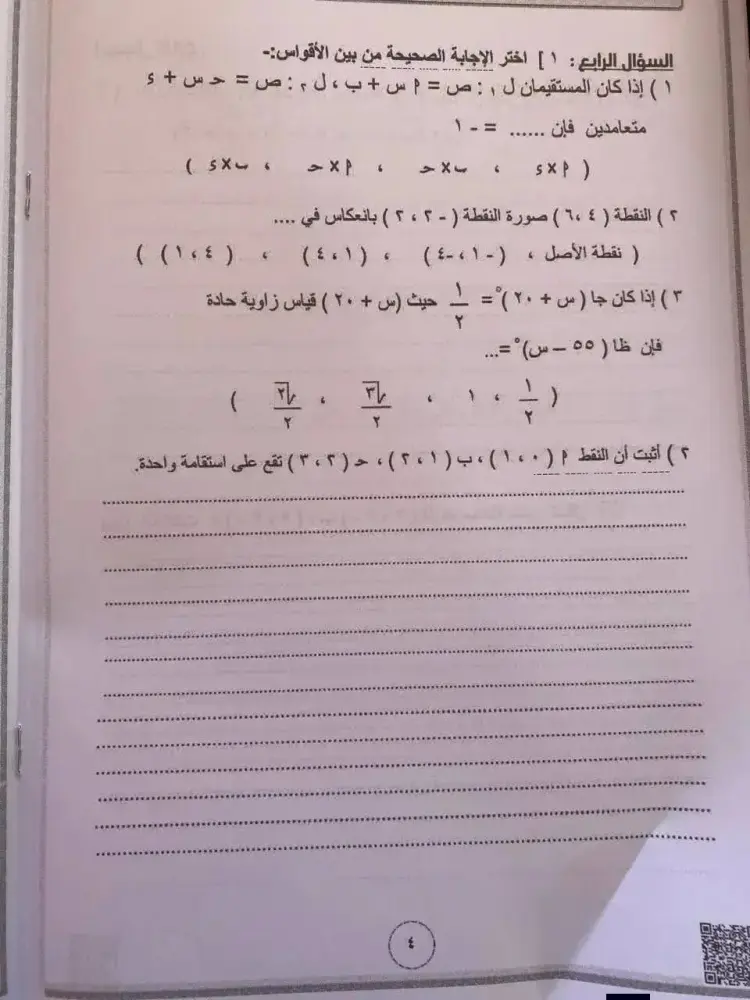 السؤال الرابع : ١ ] اختر الإجابة الصحيحة من بين الأقواس:-
١ ) إذا كان المستقيمان ل ١ : ص = ٩ س + ب ، ل ٢ : ص = حـ س + ء
متعامدين فإن ...... = - ١
( ٩ × ء ، ب × حـ ، ٩ × حـ ، ب × ء )
٢ ) النقطة ( ٤ ، ٦ ) صورة النقطة ( - ٢ ، ٢ ) بانعكاس في ....
( نقطة الأصل ، ( - ١ ، -٤ ) ، ( ١ ، ٤ ) ، ( ٤ ، ١ ) )
٣ ) إذا كان جا ( س + ٢٠ )° = ١/٢ حيث (س + ٢٠ ) قياس زاوية حادة
فإن ظا ( ٥٥ – س)° =...
( ١/٢ ، ١ ، √٣/٢ ، √٢/٢ )
٢ ) أثبت أن النقط ٩ ( ٠ ، ١ ) ، ب ( ١ ، ٢ ) ، حـ ( ٢ ، ٣ ) تقع على استقامة واحدة.
٤